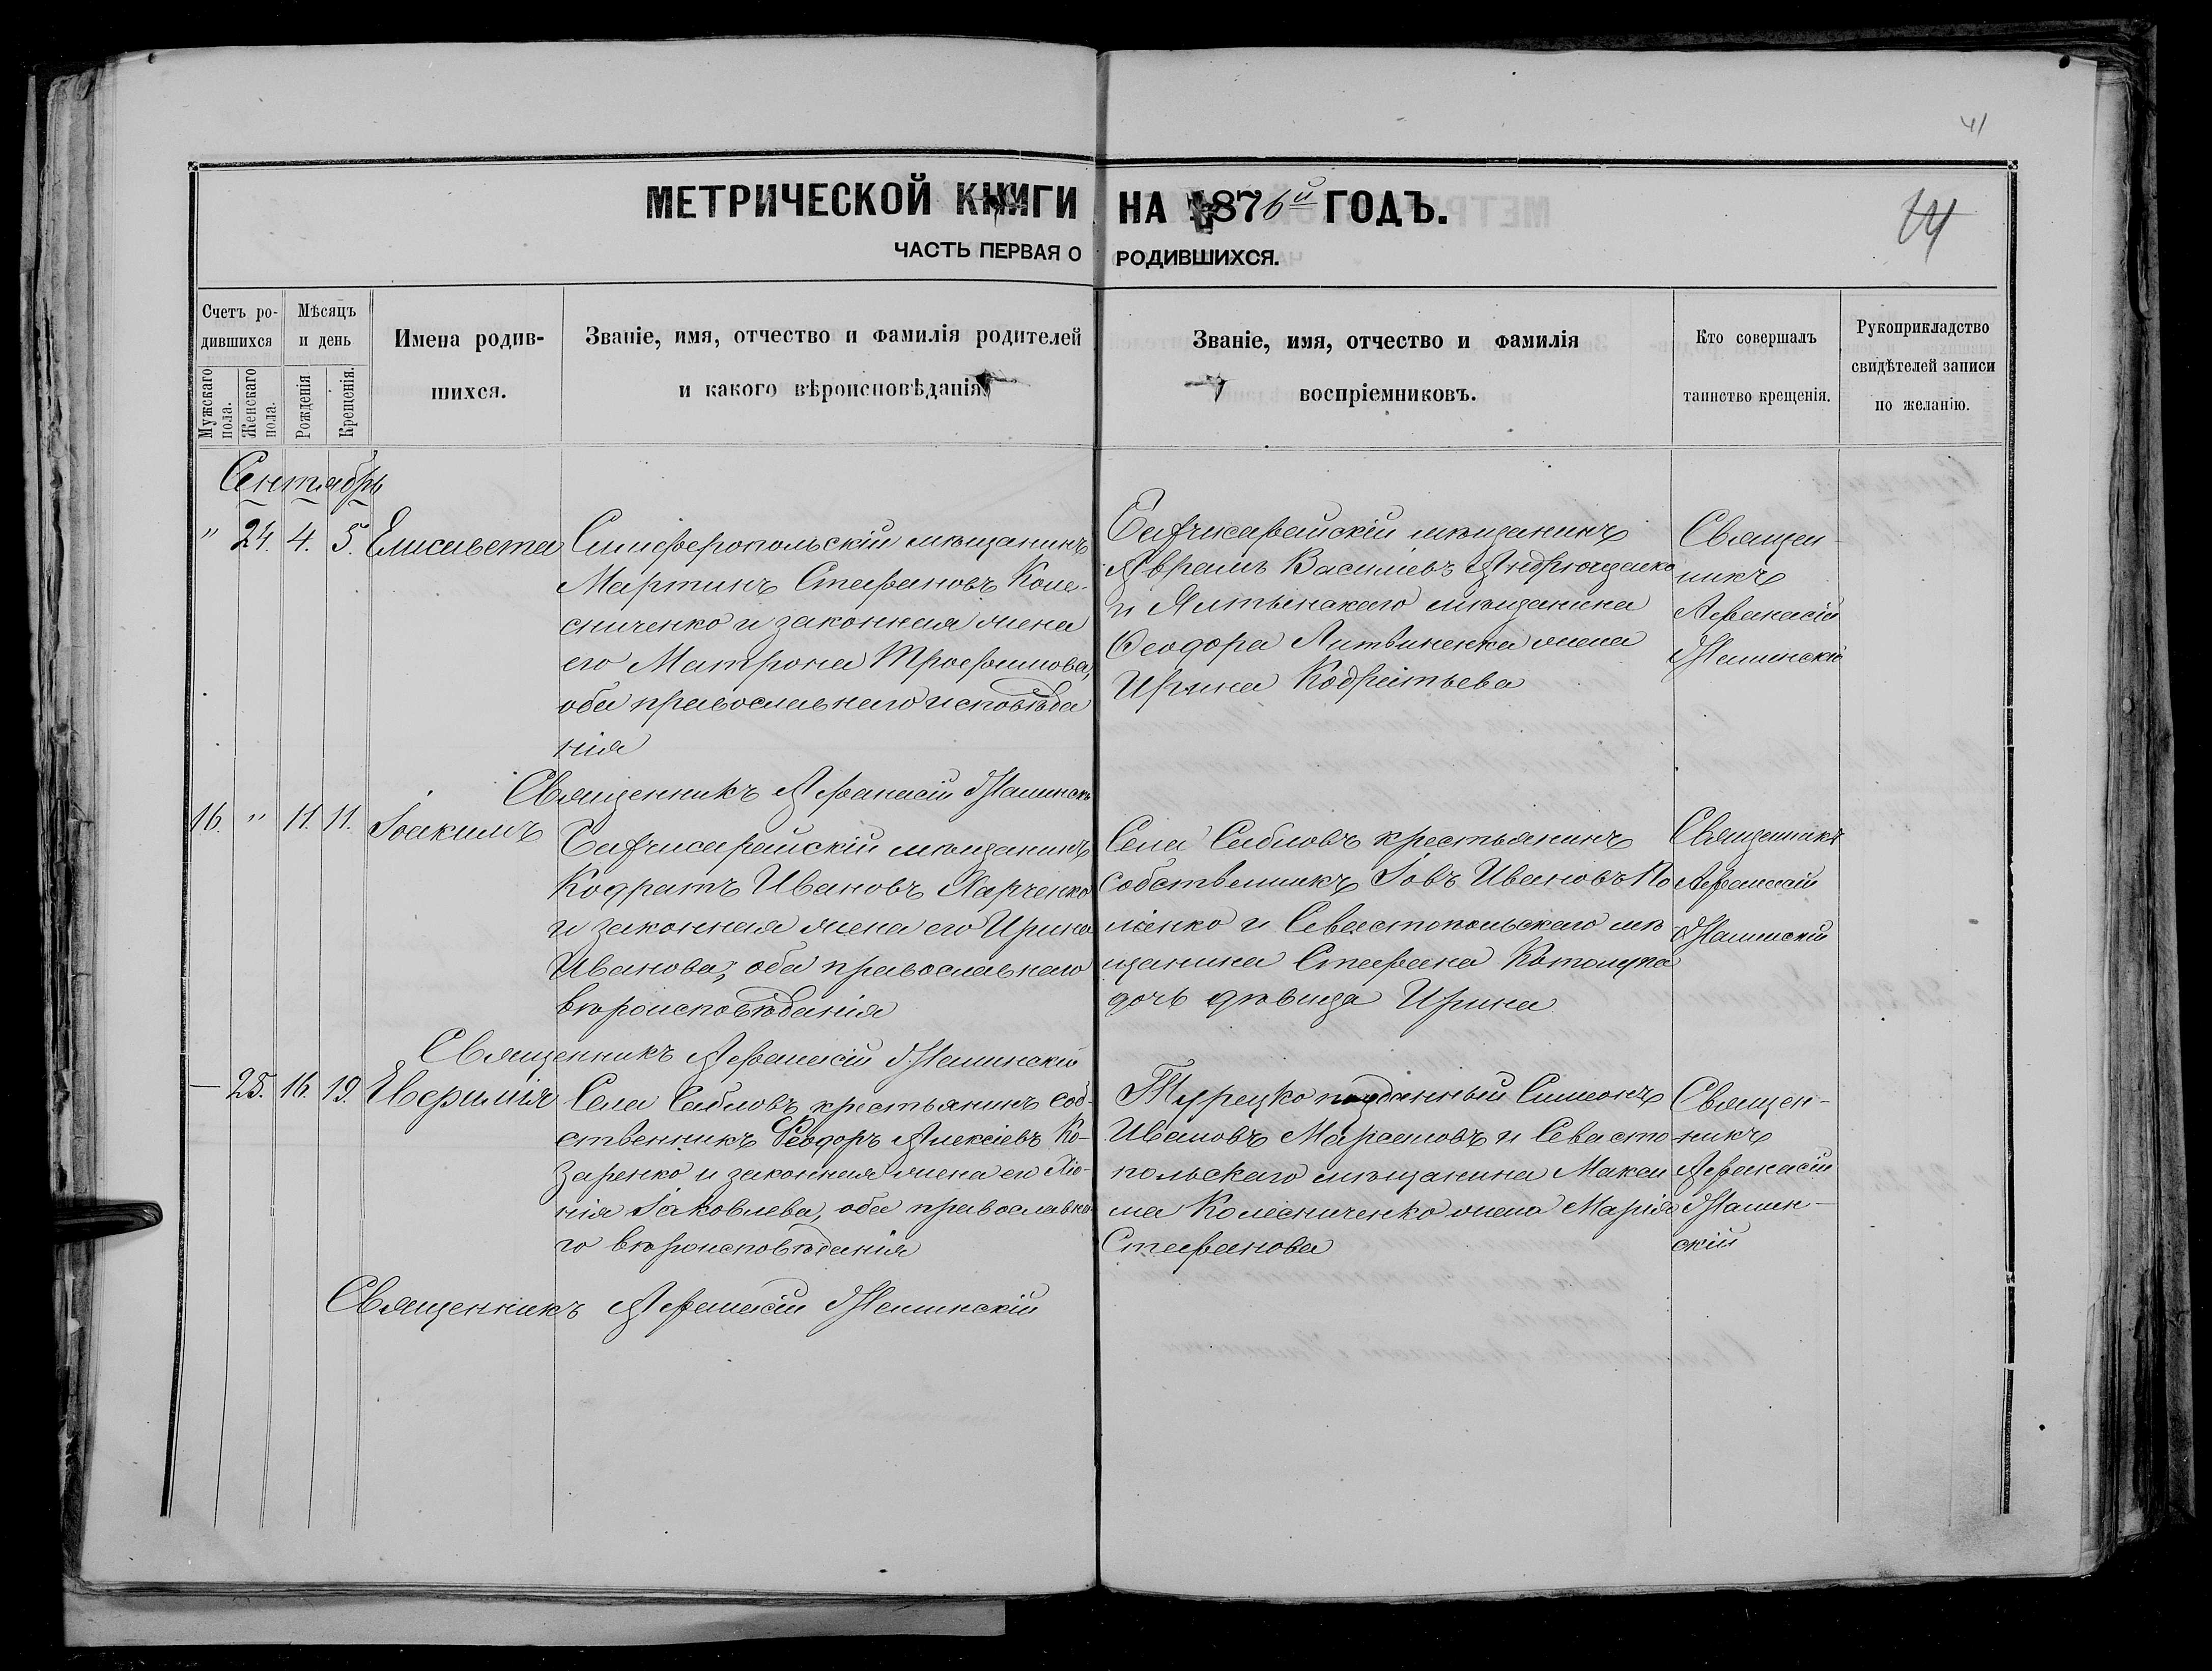 41
МЕТРИЧЕСКОЙ КНИГИ НА 1876й ГОДЪ.
ЧАСТЬ ПЕРВАЯ О РОДИВШИХСЯ.
Счетъ ро-
дившихся
Мужскаго пола.
Женскаго пола.
Мѣсяцъ
и день
Рожденія
Крещенія.
Имена родив-
шихся.
Званіе, имя, отчество и фамилія родителей
и какого вѣроисповѣданія
Званіе, имя, отчество и фамилія
воспріемниковъ.
Кто совершалъ
таинство крещенія.
Рукоприкладство
свидѣтелей записи
по желанію.
Сентябрь
" 24. 4. 5. Елисавета
Симферопольскій мѣщанинъ
Мартинъ Стефановъ Коле-
сниченко и законная жена
его Матрона Трофимова,
оба православнаго исповѣда
нія
Бахчисарайскій мѣщанинъ
Аврамъ Василіевъ Андрющенко
и Ялтынскаго мѣщанина
Феодора Литвиненка жена
Ирина Кодратьева
Священ-
никъ
Афанасій
Священникъ Афанасій
16. " 11. 11. Іоакимъ
Бахчисарайскій мѣщанинъ
Кодратъ Ивановъ Харченко
и законная жена его Ирина
Иванова, оба православнаго
вѣроисповѣданія
Села Сабловъ крестьянинъ
собственникъ Іовъ Ивановъ По
ліенко и Севастопольскаго мѣ
щанина Стефана
дочь дѣвица Ирина
Священникъ
Афанасій
Священникъ Афанасій
— 25. 16. 19. Евфимія
Села Сабловъ крестьянинъ соб-
ственникъ Феодоръ Алексіевъ Ко-
заренко и законная жена его
Іаковлева, оба православна
го вѣроисповѣданія
Турецко подданный Симеонъ
Ивановъ и Севасто
польскаго мѣщанина Макси
ма Колесниченко жена Марія
Стефанова
Священ-
никъ
Афанасій
скій
Священникъ Афанасій